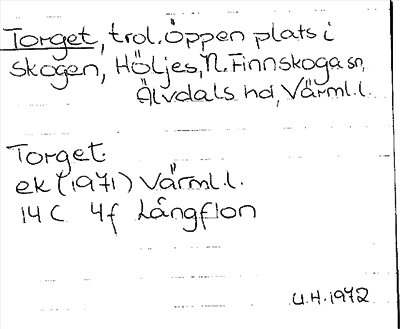 Torget, trol. Öppen plats i
skogen, Höljes, N. Finnskoga sn,
Älvdals hd, Värml. l.
Torget.
ek (1971) Värml. l.
14 C 4f Långflon
U.H. 1972